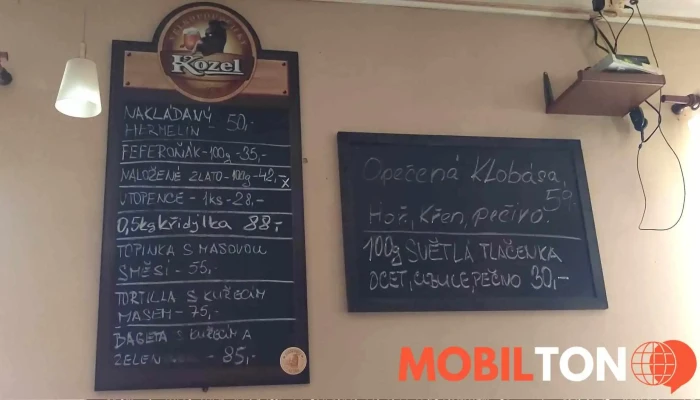 VELKOPOPOVICKÝ
Kozel
NAKLÁDANÝ
HERMELIN - 50,-
FEFEROŇÁK - 100g - 35,-
NALOŽENÉ ZLATO - 100g - 42,-
UTOPENCE - 1ks - 28,-
0,5kg křidýlka 88,-
TOPINKA S MASOVOU
SMĚSÍ - 55,-
TORTILLA S KUŘECÍM
MASEM - 75,-
BAGETA S KUŘECÍM A
- 85,-
Opečená Klobása,
Hoř, Křen, pečivo
100g SVĚTLÁ TLAČENKA
OCET, CIBULE, PEČIVO 30,-
MOBILTON